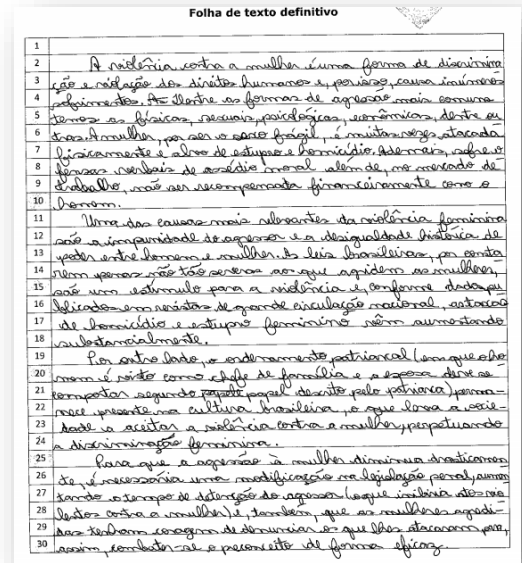 Folha de texto definitivo
1
2 A violência contra a mulher é uma forma de discrimina
3 ção e violação dos direitos humanos e, por isso, causa inúmeros
4 sofrimentos. Dentre as formas de agressão mais comuns
5 temos as físicas, sexuais, psicológicas, econômicas, dentre ou
6 tras. A mulher, por ser o sexo frágil, é muitas vezes atacada
7 fisicamente e alvo de estupro e homicídio. Ademais, sofre o
8 fensas verbais de assédio moral além de, no mercado de
9 trabalho, não ser recompensada financeiramente como o
10 homem.
11 Uma das causas mais relevantes da violência feminina
12 são a impunidade do agressor e a desigualdade histórica de
13 poder entre homem e mulher. As leis brasileiras, por conta
14 rem penas não tão severas aos que agridem as mulheres,
15 são um estímulo para a violência e, conforme dados pu
16 blicados em revistas de grande circulação nacional, as taxas
17 de homicídio e estupro feminino vêm aumentando
18 substancialmente.
19 Por outro lado, o ordenamento patriarcal (em que o ho
20 mem é visto como chefe de família e a esposa deve se
21 comportar segundo papel descrito pelo patriarca) perma-
22 nece presente na cultura brasileira, o que leva a socie
23 dade a aceitar a violência contra a mulher, perpetuando
24 a discriminação feminina.
25 Para que a agressão à mulher diminua drasticamen
26 te, é necessária uma modificação na legislação penal, aumen
27 tando o tempo de detenção do agressor (o que inibiria atos vio
28 lentos contra a mulher) e, também, que as mulheres agredi-
29 das tenham coragem de denunciar os que lhes atacaram para,
30 assim, combater-se o preconceito de forma eficaz.